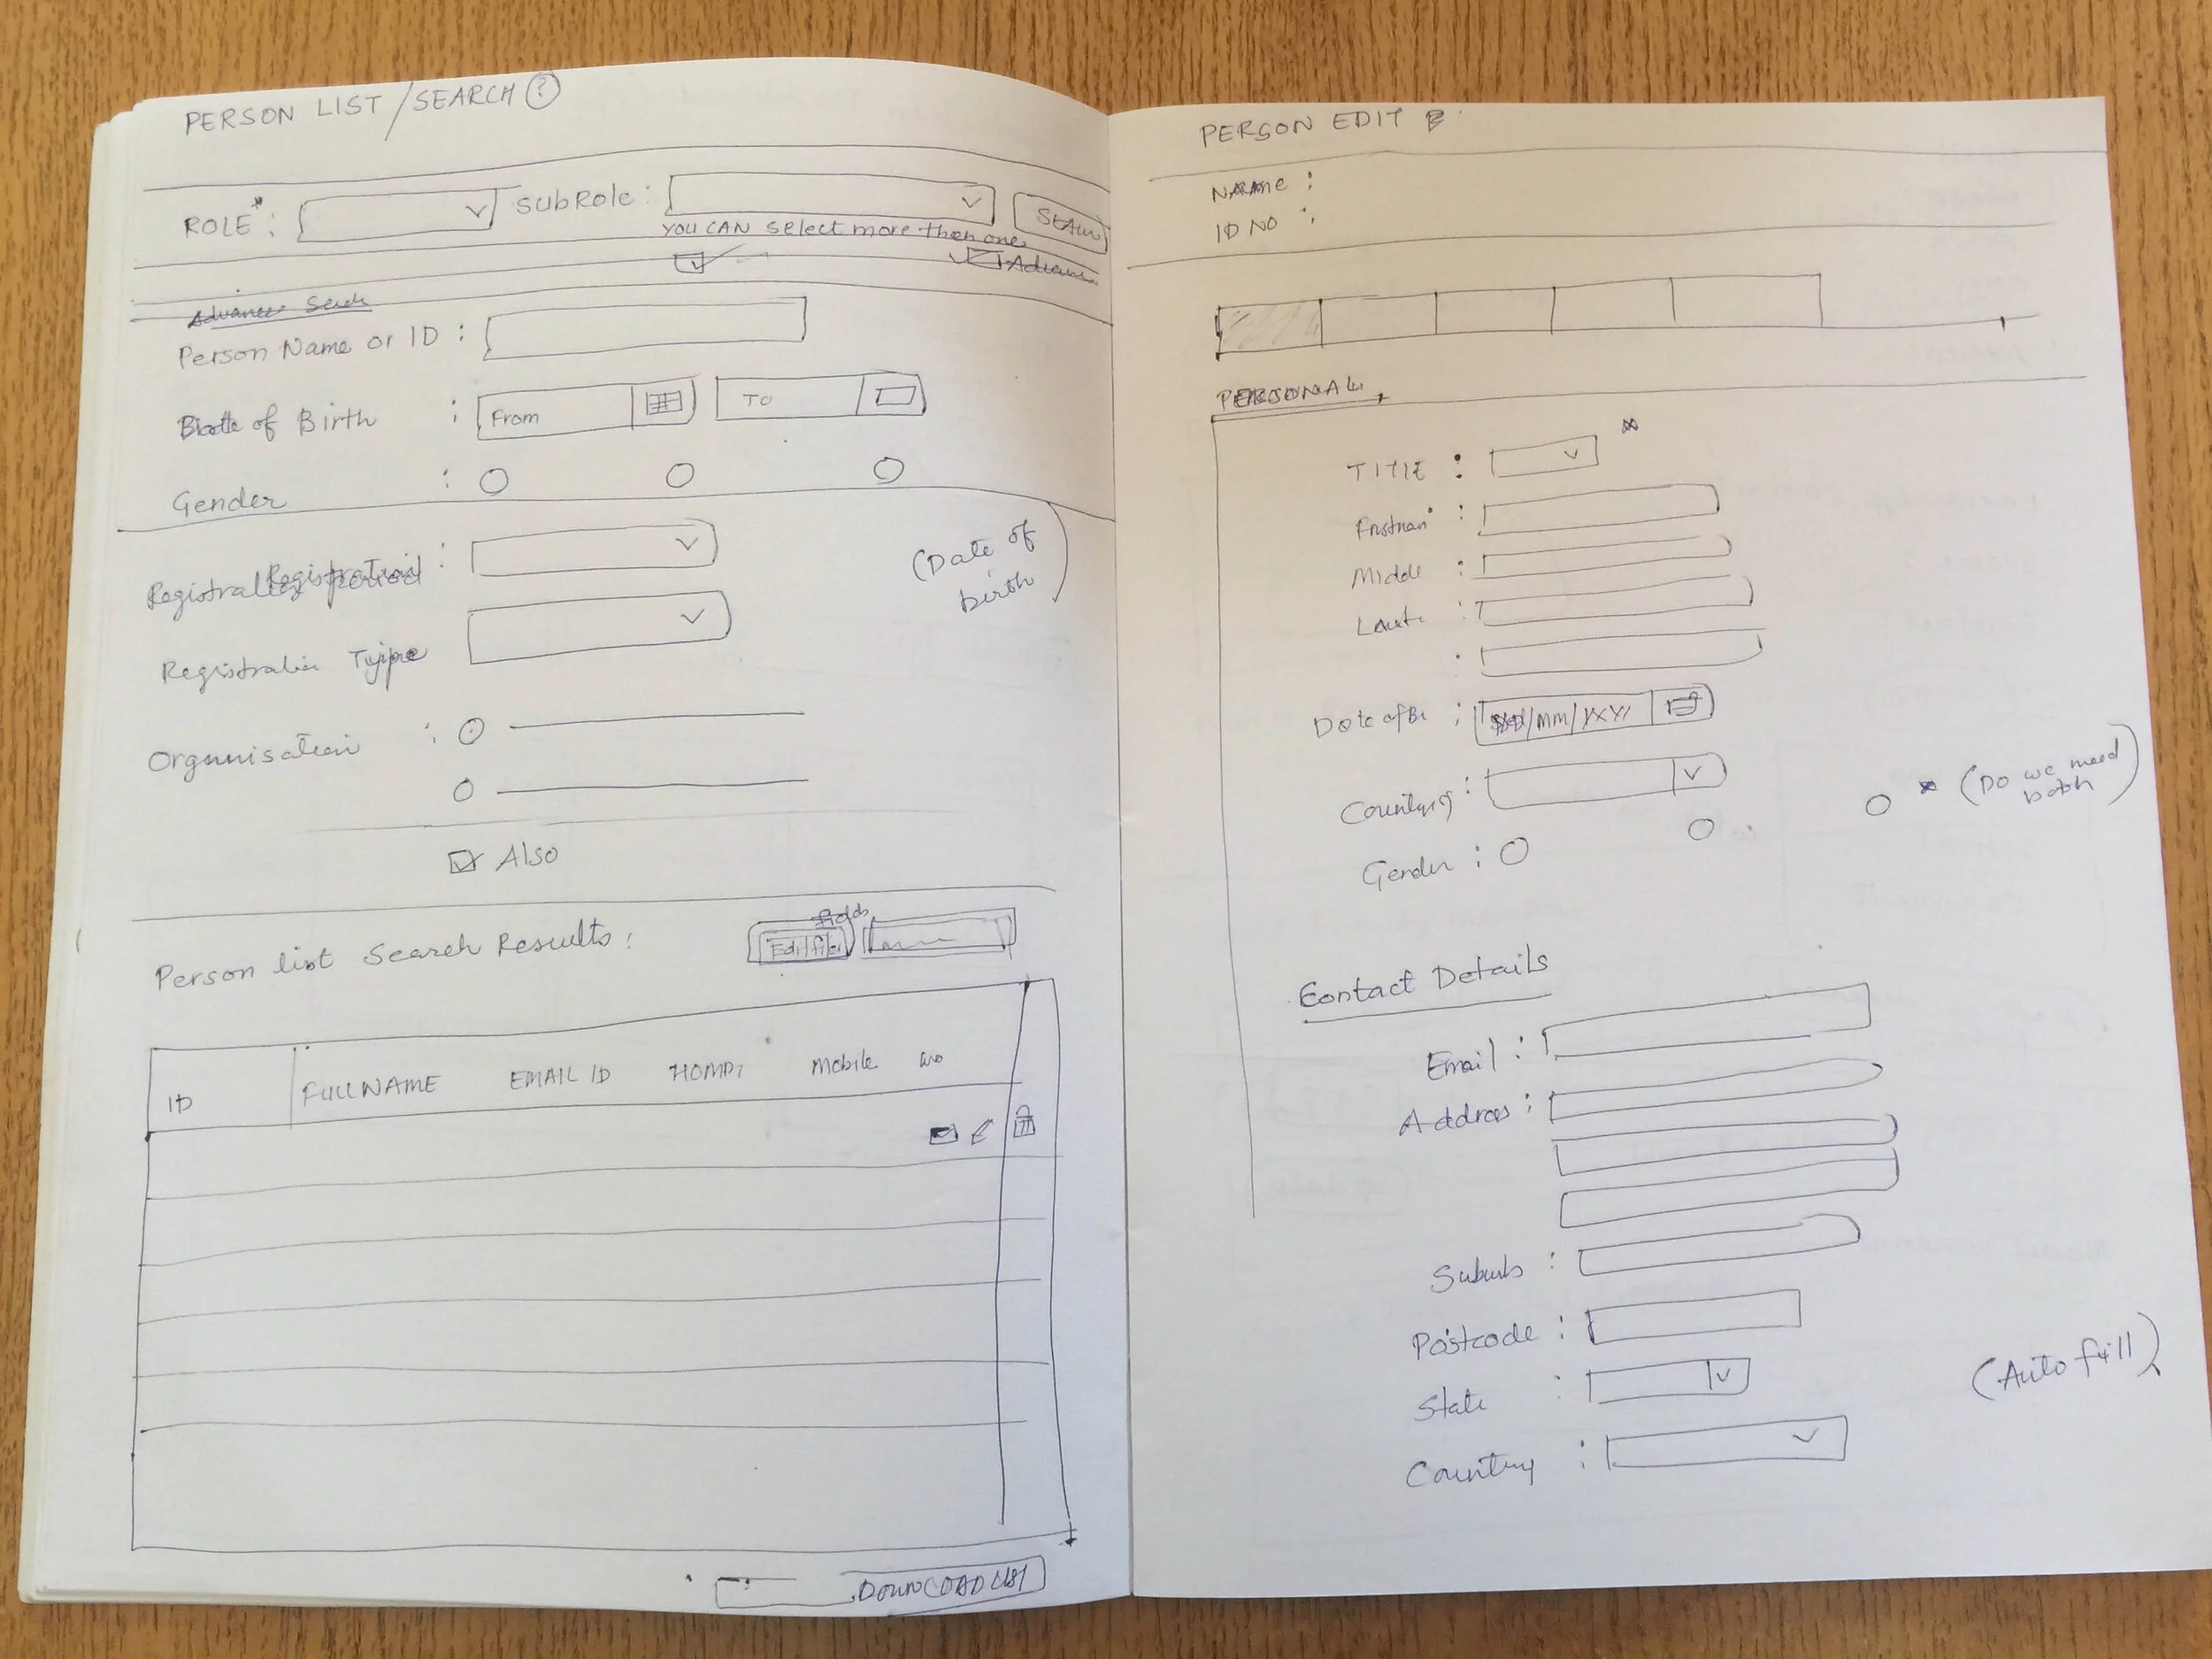 PERSON LIST / SEARCH ?
ROLE* : SubRole : 
YOU CAN select more then one
Advance Search
Person Name or ID :
Date of Birth : From To
Gender :
Registration Period :
(Date of
birth)
Registration Type
Organisation :
Also
Person list Search Results :
fields
ID FULLNAME EMAIL ID Mobile
DOWNLOAD LIST
PERSON EDIT
NAme :
ID NO :
PERSONAL
TITLE : *
Middle :
Date of Bi : DD/MM/YYYY
Gender : * (Do we need
both)
Contact Details
Email :
Address :
Suburb :
Postcode :
State :
(Auto fill)
Country :